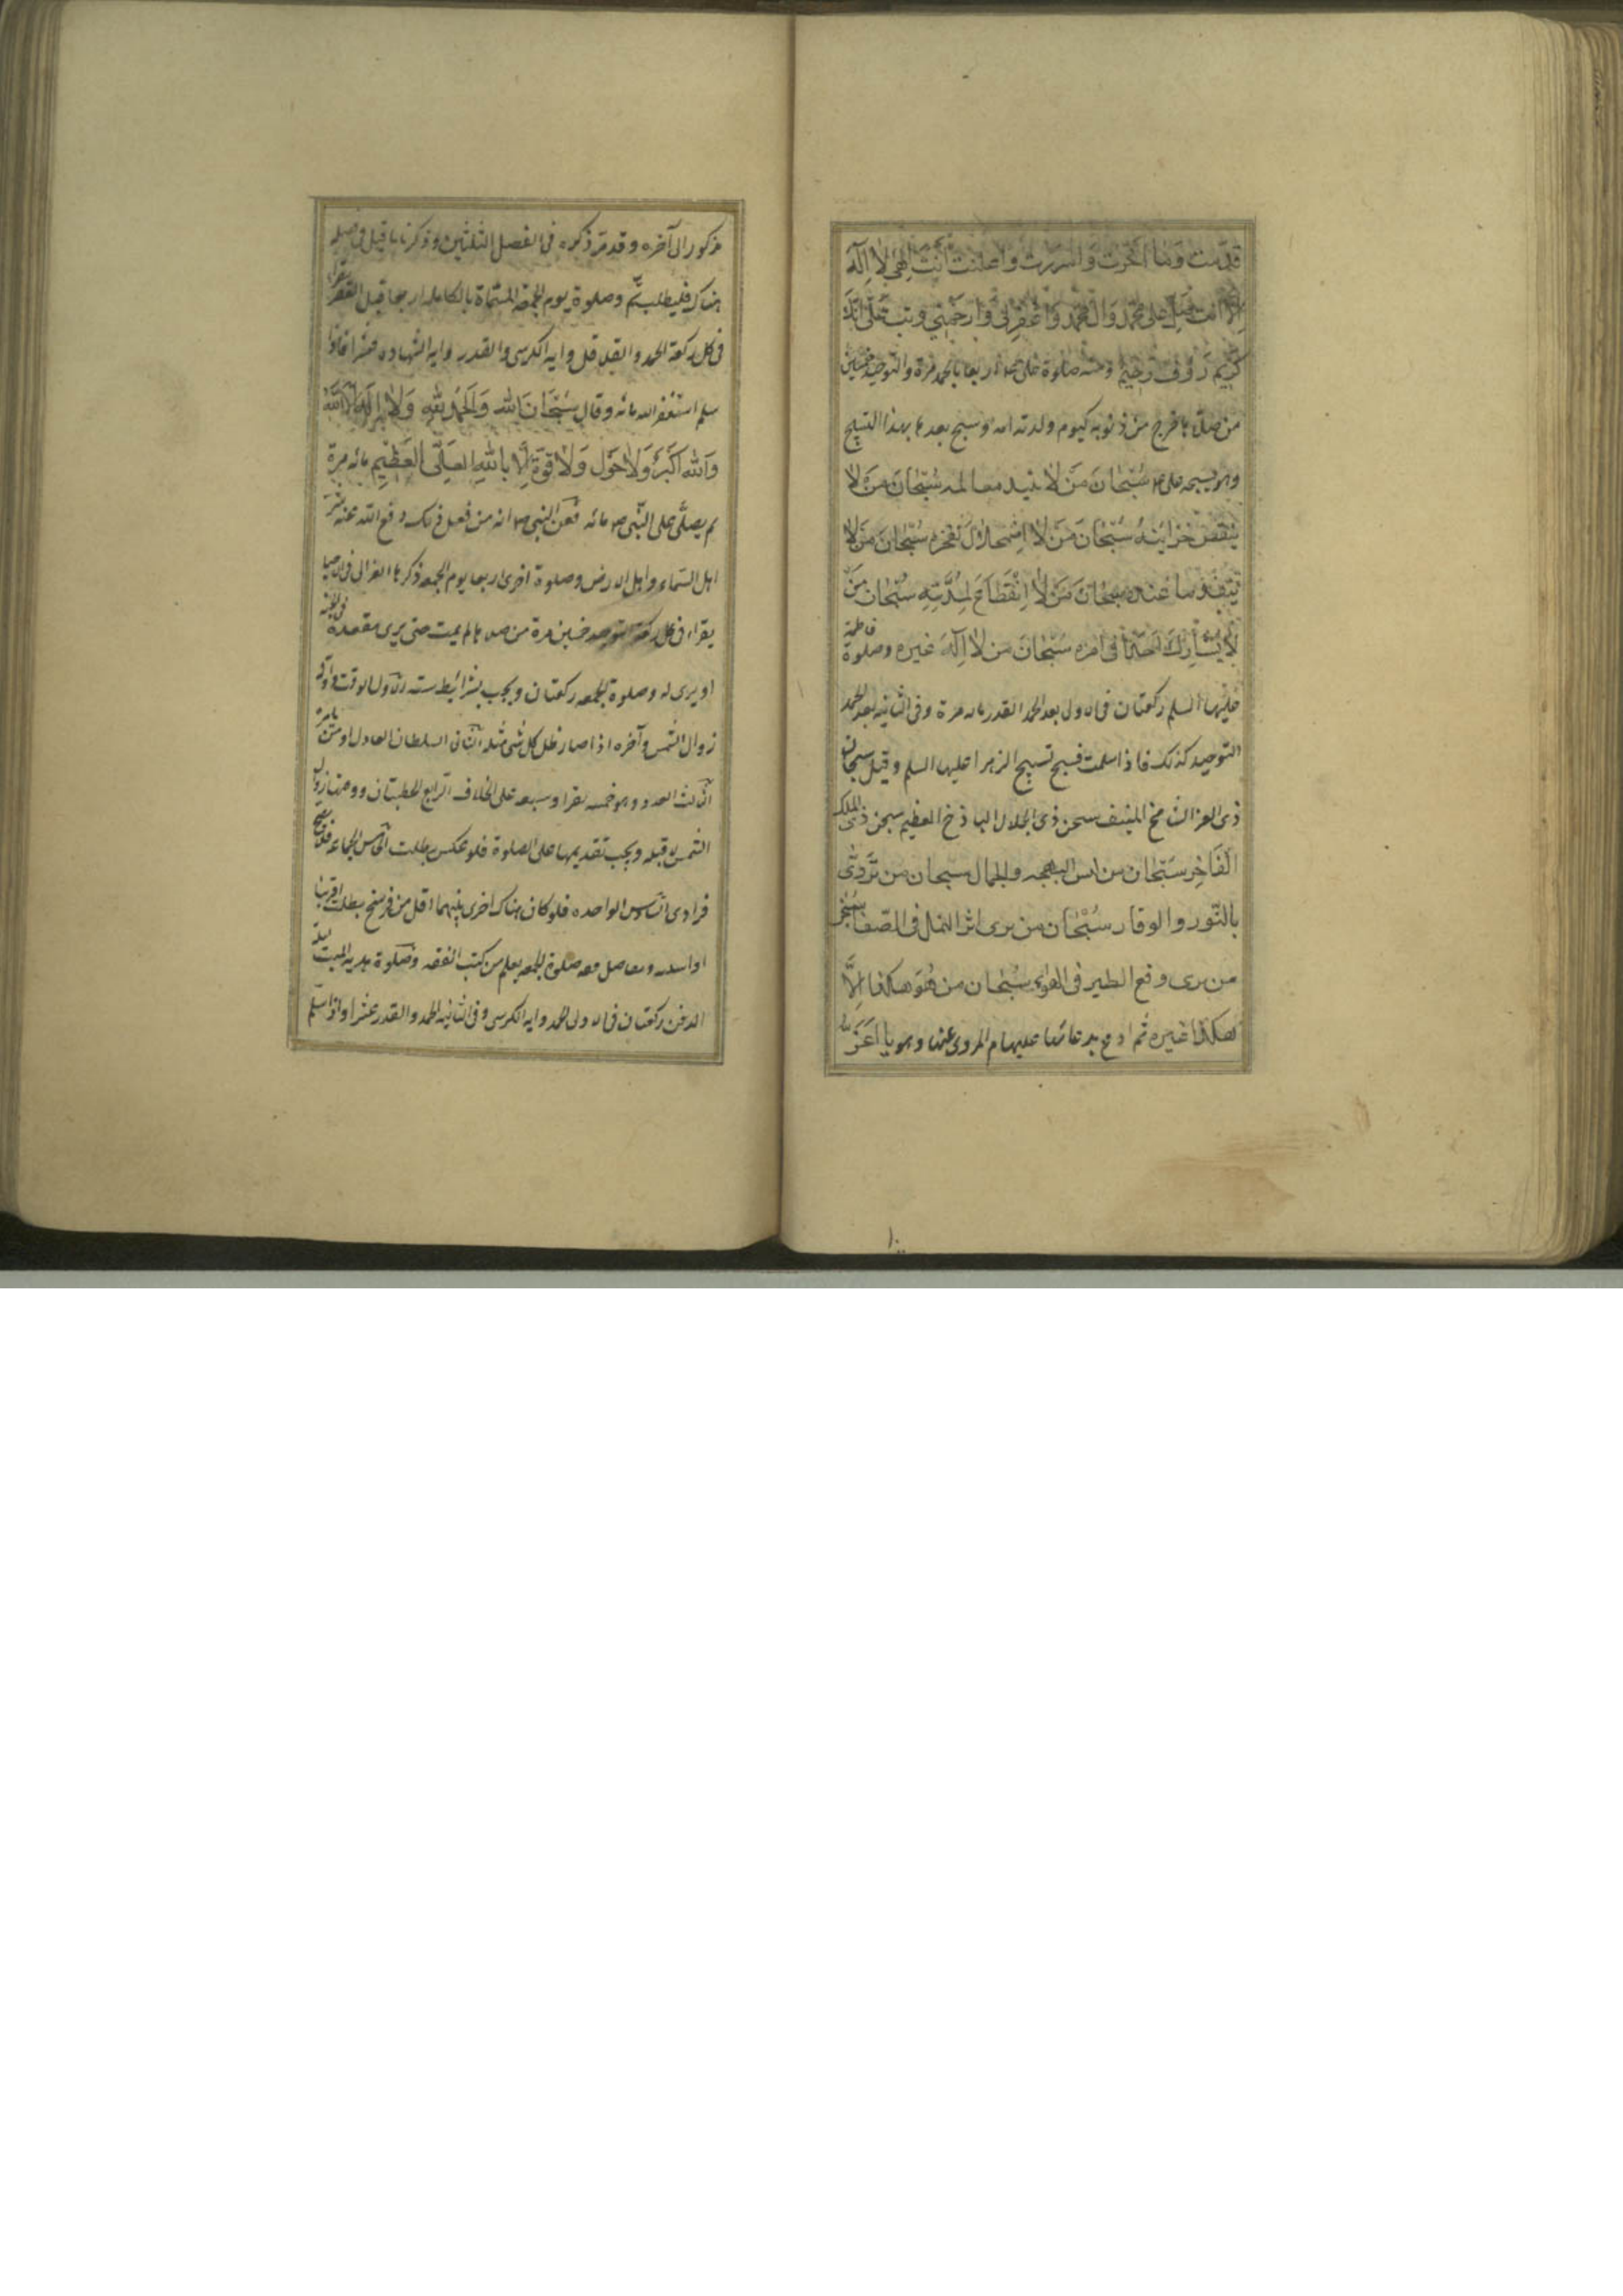 قدمت وما اخرت واسررت واعلنت انت الهي لا اله
الا انت صل على محمد وال محمد واغفر لي وارحمني وتب علي انك
كريم رؤف رحيم ومنه صلوة علي ع م اربعا بالحمد مرة والتوحيد خمسين
من صلاها خرج من ذنوبه كيوم ولدته امه وسبح بعدها بهذا التسبيح
وهو تسبيحه علي ع م سُبْحَانَ مَنْ لا تبيد معالمه سُبْحَانَ مَنْ لا
ينقص خزاينه سُبْحَانَ مَنْ لا اضمحلال لفخره سُبْحَانَ مَنْ لا
ينفد ما عنده سبحان مَنْ لا اِنْقِطَاعَ لِمُدَّتِهِ سُبْحان مَنْ
لا يُشارك احدا في امره سُبْحَانَ من لا اله غيره وصلوة فاطمة
عليها السلم ركعتان في الاولى بعد الحمد القدر مائه مرة وفي الثانيه بعد الحمد
التوحيد كذلك فاذا سلمت فسبح تسبيح الزهرا عليها السلم وقيل سبحان
ذي العز الشامخ المنيف سبحن ذي الجلال الباذخ العظيم سبحن ذي الملك
الفَاخِر سُبْحَان من لبس البهجه والجمال سبحان من تَرَدّى
بالنّور والوقار سُبْحَان من يرى اثر النمل في الصّفا سُبْحن
من يرى وقع الطير في الهواء سُبْحان من هُوَ هكذا اِلاَّ
هكذا غيره ثم ادع بدعائها عليها م المروي عنها وهو يا اَعَزّ
مذكور الى آخره وقد مرّ ذكره في الفصل الثلثين وذكرنا ما قيل في فضله
هناك فليطلب ثم وصلوة يوم الجمعة المسمّاة بالكامله اربعا قبل الظهر يقرا
في كل ركعة الحمد والقلاقل وايه الكرسي والقدر وايه الشهاده عشرا فاذا
سلم استغفر الله مائه وقال سُبْحَانَ الله وَالحَمْدُ لِلّهِ وَلا اِلهَ اِلا اللهُ
وَاللهُ اَكْبَرُ وَلا حَوْلَ وَلا قُوّةَ اِلا بِاللهِ العَلِيّ العَظِيمِ مائه مرة
ثم يصلّي على النّبي ص م مائه فعن النبي ص م انه من فعل ذلك دفع الله عنه شرّ
اهل السّماء واهل الارض وصلوة اخرى اربعا يوم الجمعه ذكرها الغزالي في الاحيا
يقراء في كل ركعة التوحيد خمسين مرة من صلاها لم يمت حتى يرى مقعده في الجنة
او يرى له وصلوة الجمعه ركعتان ويجب بشرائيط سته الاول الوقت واوله
زوال الشمس وآخره اذا صار ظل كل شئ مثله الثاني السلطان العادل او من يامره
الثالث العدد وهو خمسه نفرا وسبعه على الخلاف الرابع الخطبتان ووقتهما زوال
الشمس لا قبله ويجب تقديمها على الصلوة فلو عكس بطلت الخامس الجماعه فلا تصح
فرادى السادس الواحده فلو كان هناك اخرى بينهما اقل من فرسخ بطلت
من كتب الفقه وصلوة هديه الميت ليلة
الدفن ركعتان في الاولى الحمد وايه الكرسي وفي الثانيه الحمد والقدر عشرا واذا سلّم